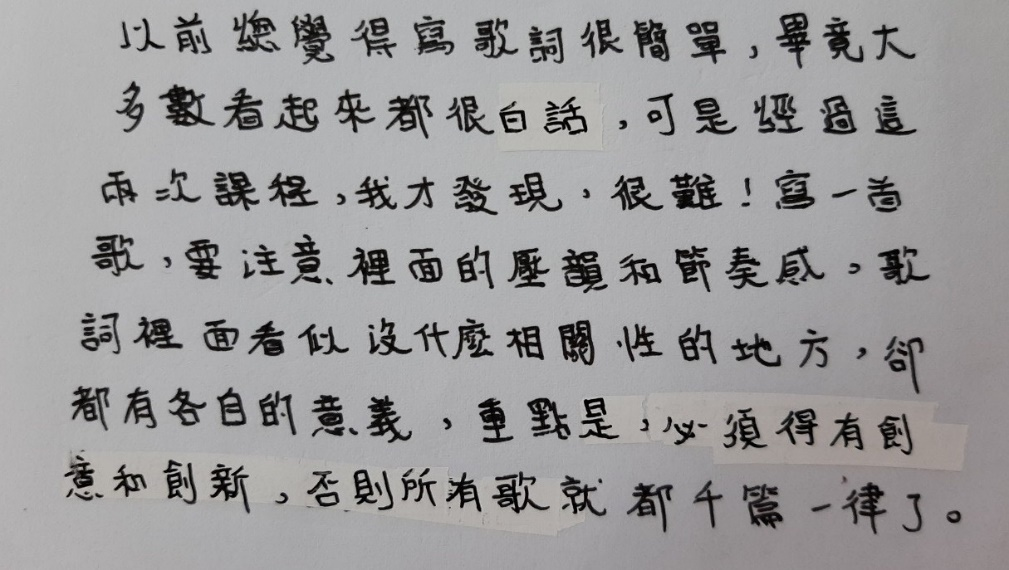 以前總覺得寫歌詞很簡單，畢竟大
多數看起來都很白話，可是經過這
兩次課程，我才發現，很難！寫一首
歌，要注意裡面的壓韻和節奏感，歌
詞裡面看似沒什麼相關性的地方，卻
都有各自的意義，重點是，必須得有創
意和創新，否則所有歌就都千篇一律了。